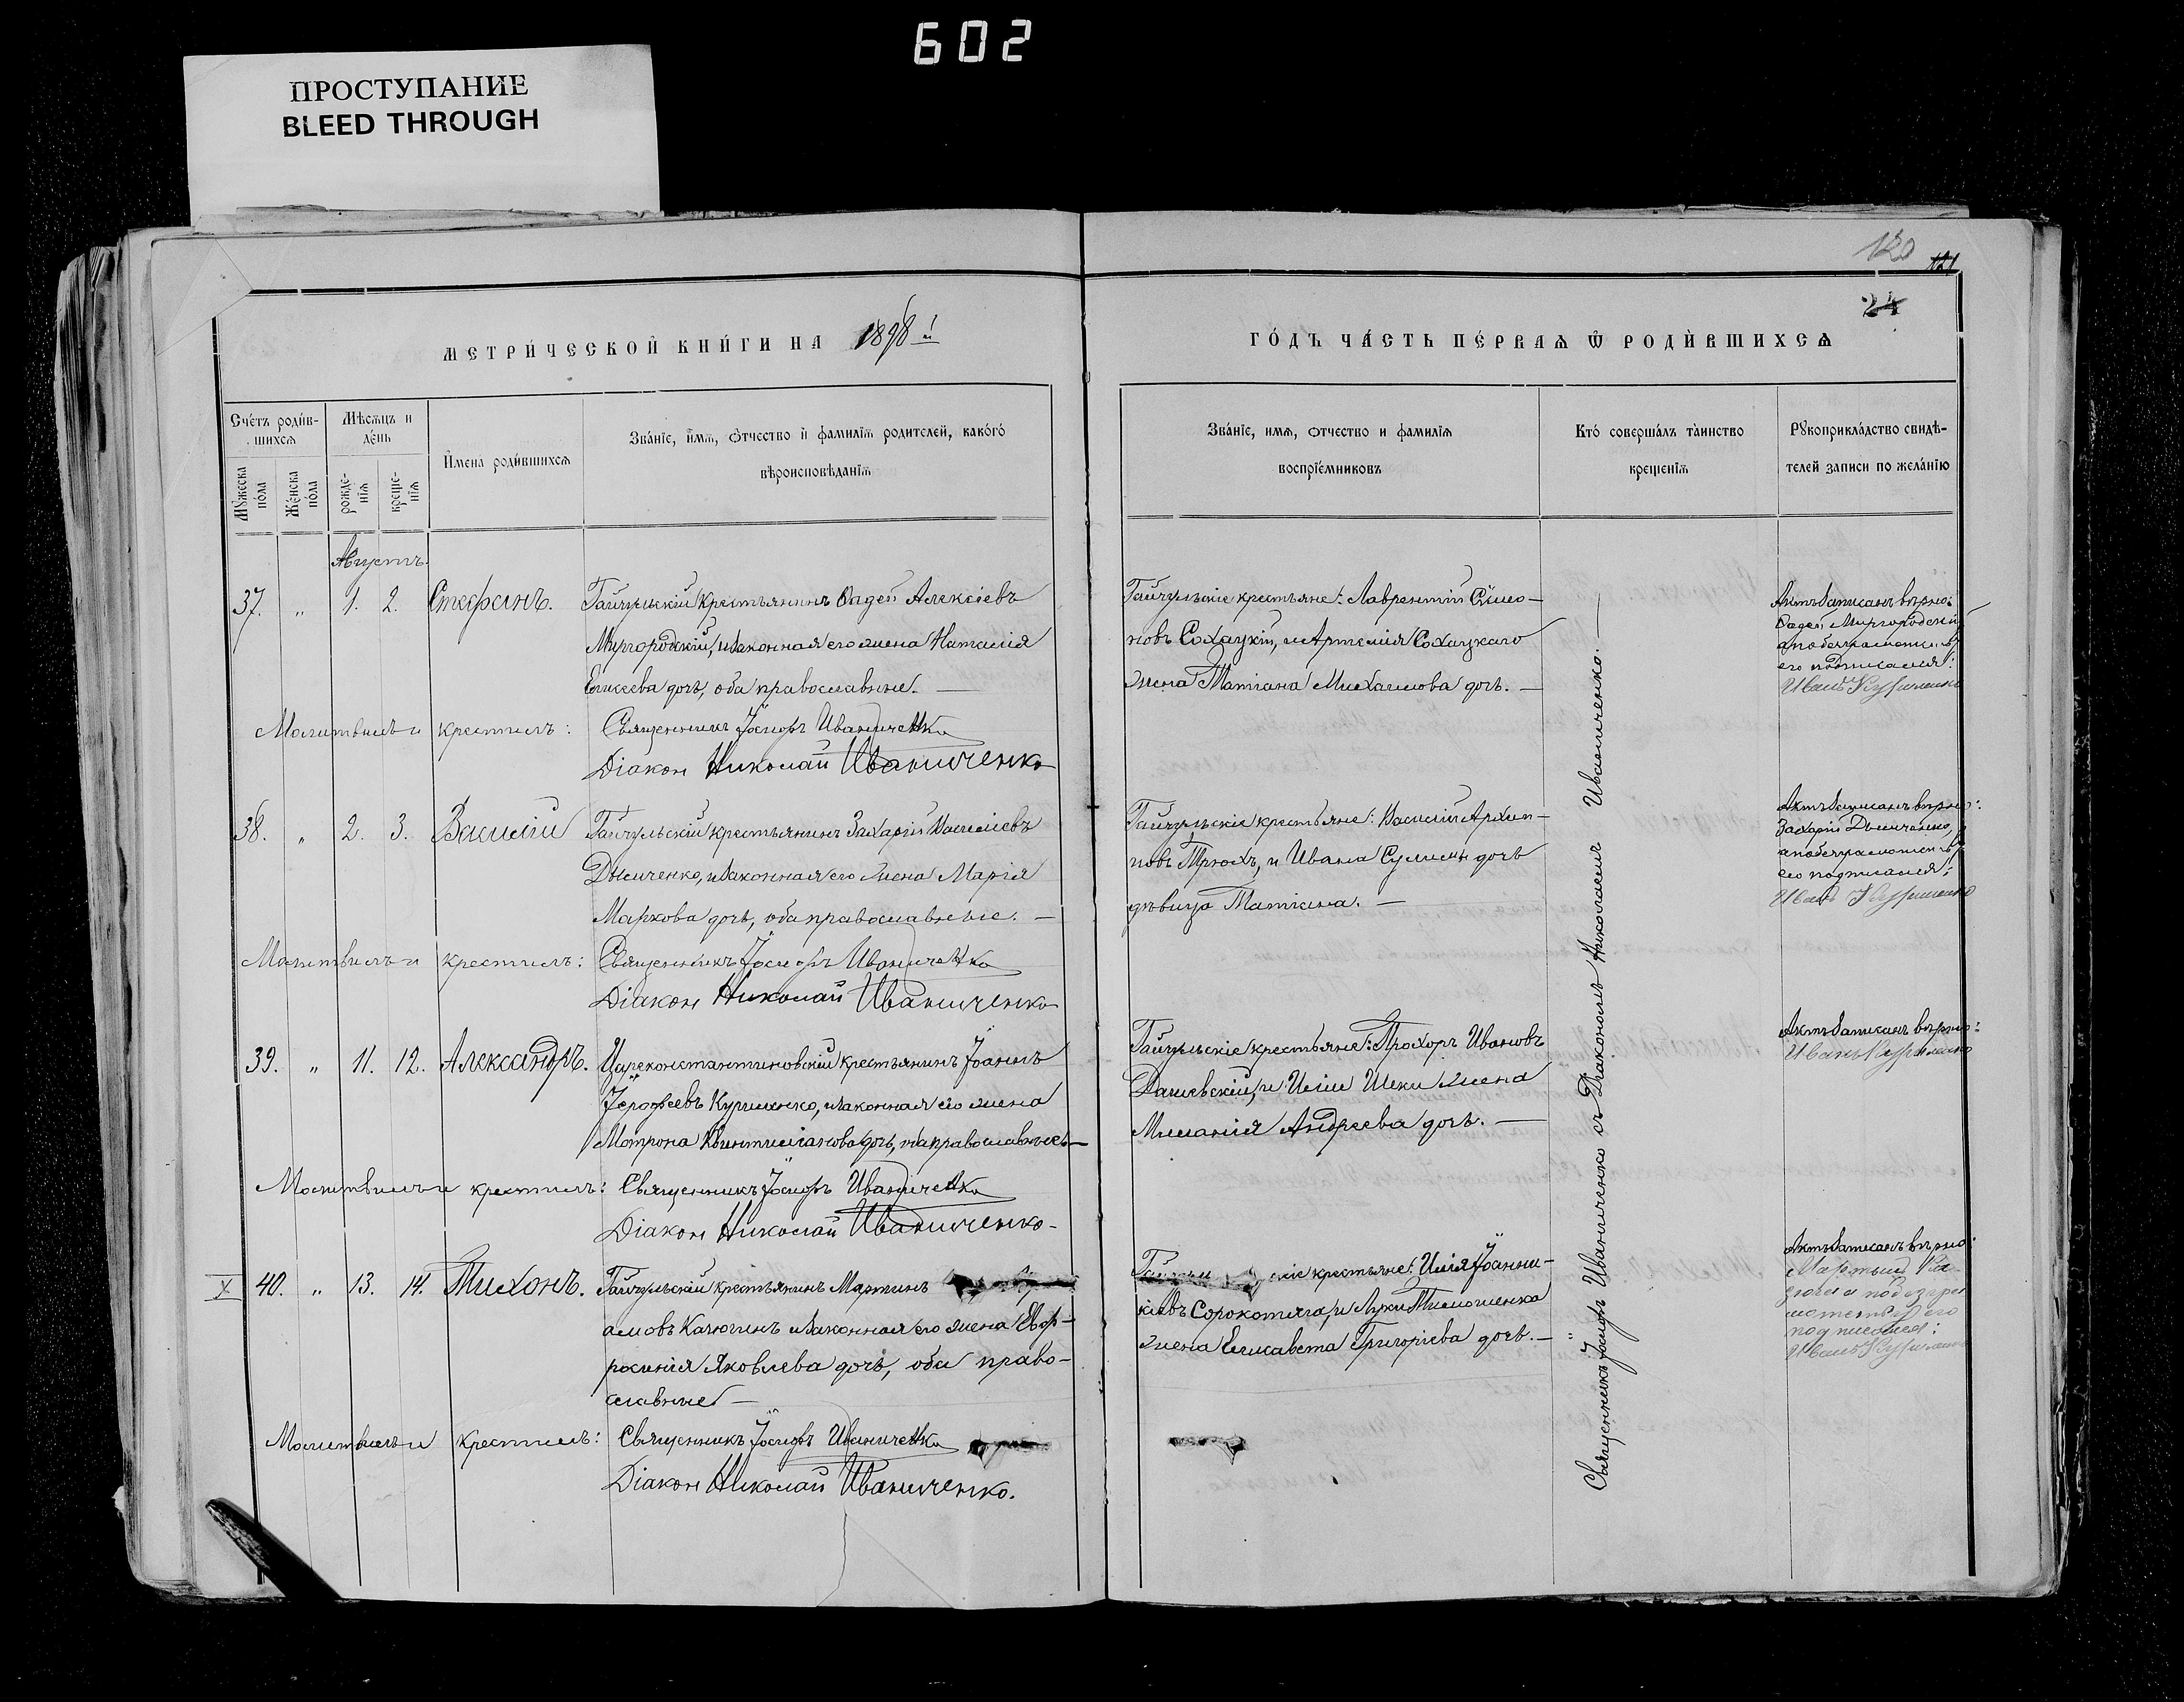 602
ПРОСТУПАНИЕ
BLEED THROUGH
120
121
24
МЕТРИ́ЧЕСКОЙ КНИ́ГИ НА 1898й
ГО́ДЪ ЧА́СТЬ ПЕ́РВАѦ Ѿ РОДИ́ВШИХСѦ
Сче́тъ роди́в-
шихсѧ
Мꙋжеска по́ла
Же́нска по́ла
Мѣсѧцъ и
де́нь
рожде-
нїѧ
креще-
нїѧ
Имена̀ роди́вшихсѧ
Зва́нїе, и́мѧ, ѻтчество и фамилїѧ родителей, како́гѡ
вѣроисповѣданїѧ
Зва́нїе, имѧ, ѻтчество и фамилїѧ
воспрїе́мниковъ
Кто̀ соверша́лъ та̀инство
крещенїѧ
Рꙋкоприкла́дство свидѣ-
телей записи по жела́нїю
Августъ.
37. „ 1. 2. Стефанъ.
Гайчульскій крестьянинъ Фадей Алексіевъ
Миргородскій, и законная его жена Наталія
Елисеева дочь, оба православные. —
Молитвилъ и крестилъ: Священникъ Іосифъ Иваниченко
Діакон Николай Иваниченко
Гайчульскіе крестьяне: Лаврентій Симо-
новъ Сохацкій, и Артемія Сохацкаго
жена Татіана Михаилова дочь. —
Актъ записанъ вѣрно:
Фадей Миргородскій
а по безграмотности
его подписался:
Иванъ Куриленко
38. „ 2. 3. Василій
Гайчульскій крестьянинъ Захарій Василіевъ
Дымченко, и законная его жена Марія
Маркова дочь, оба православные. —
Молитвилъ и крестилъ: Священникъ Іосифъ Иваниченко
Діакон Николай Иваниченко
Гайчульскіе крестьяне: Василій Архип-
повъ Трюхъ, и Ивана Сулимы дочь
дѣвица Татіана. —
Актъ записанъ вѣрно:
Захарій Дымченко,
а по безграмотности
его подписался:
Иванъ Куриленко
39. „ 11. 12. Александръ.
Цареконстантиновскій крестьянинъ Іоаннъ
Іерофеевъ Куриленко, и законная его жена
Мотрона Квинтиліанова дочь, оба православные —
Молитвилъ и крестилъ: Священникъ Іосифъ Иваниченко
Діакон Николай Иваниченко-
Гайчульскіе крестьяне: Прохоръ Ивановъ
Дашевскій, и Иліи Шеки жена
Меланія Андреева дочь. —
Актъ записанъ вѣрно:
Иванъ Куриленко
X 40. „ 13. 14. Тихонъ.
Гайчульскій крестьянинъ Мартинъ
амовъ Калюгинъ и законная его жена Евф-
росинія Яковлева дочь, оба право-
славные —
Молитвилъ и крестилъ: Священникъ Іосифъ Иваниченко
Діакон Николай Иваниченко.
скіе крестьяне: Илія Іоанни-
кіевъ Сорокотяга, и Луки Тимошенка
жена Елисавета Григоріева дочь. —
Актъ записанъ вѣрно:
его
подписался:
Иванъ Куриленко
Священникъ Іосифъ Иваниченко съ Діакономъ Николаемъ Иваниченко. —